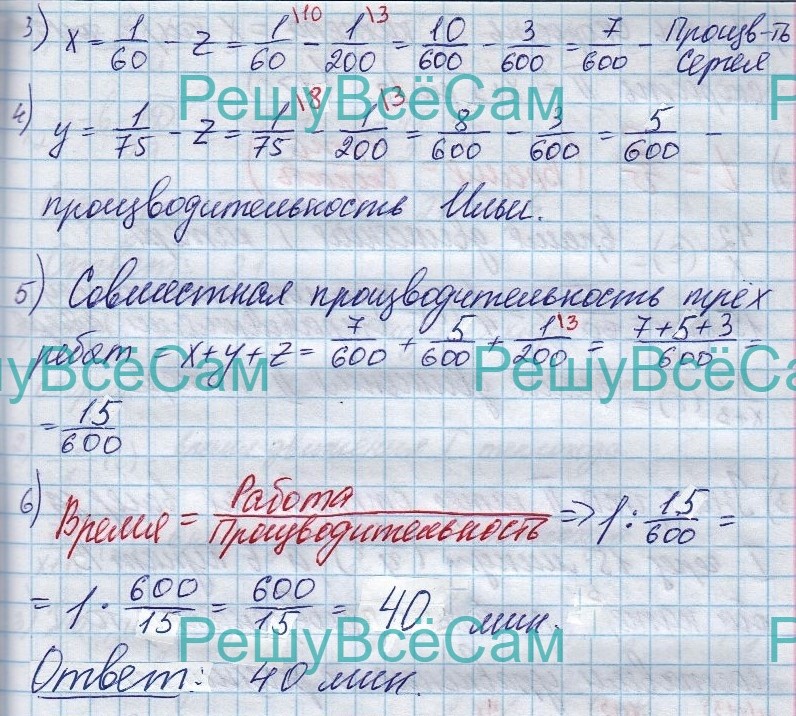 3) x = 1/60 - z = 1\10/60 - 1\3/200 = 10/600 - 3/600 = 7/600 - Произв-ть
Сергея
РешуВсёСам
4) y = 1/75 - z = 1\8/75 - 1\3/200 = 8/600 - 3/600 = 5/600 -
производительность Ильи.
5) Совместная производительность трёх
ребят = x+y+z = 7/600 + 5/600 + 1\3/200 = 7+5+3/600 =
уВсёСам РешуВсёС
= 15/600
6) Время = Работа/Производительность => 1 : 15/600 =
= 1 · 600/15 = 600/15 = 40 мин.
РешуВсёСам
Ответ: 40 мин.